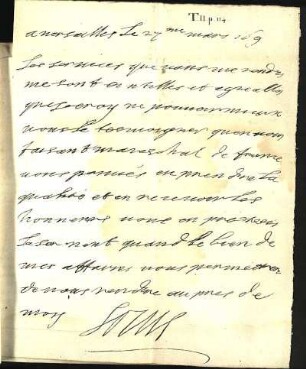 a versailles le 27me mars 169
les services que vous me rendes
me sont si utilles et agreables
que je croy ne pouvoir mieux
vous le tesmoigner quen vous
faisant mareschal de france
vous pouvés en prendre la
qualité et en recevoir les
honneurs vous en presterés
le serment quand le bien de
mes affaires vous permettra
de vous rendre aupres de
moy
Louis